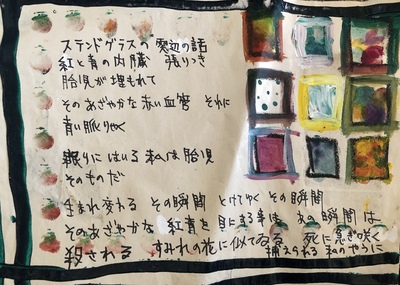 ステンドグラスの窓辺の話
紅と青の内臓 張りつき
胎児が埋もれて
そのあざやかな赤い血管 それに
青い脈りゃく
眠りにはいる 私は胎児
そのものだ
生まれ変わる その瞬間 とけてゆく その瞬間
そのあざやかな 紅青を目にする事は あの瞬間は
殺される すみれの花に似てゐる 死に急ぎ咲く
捕えられる 私のやうに